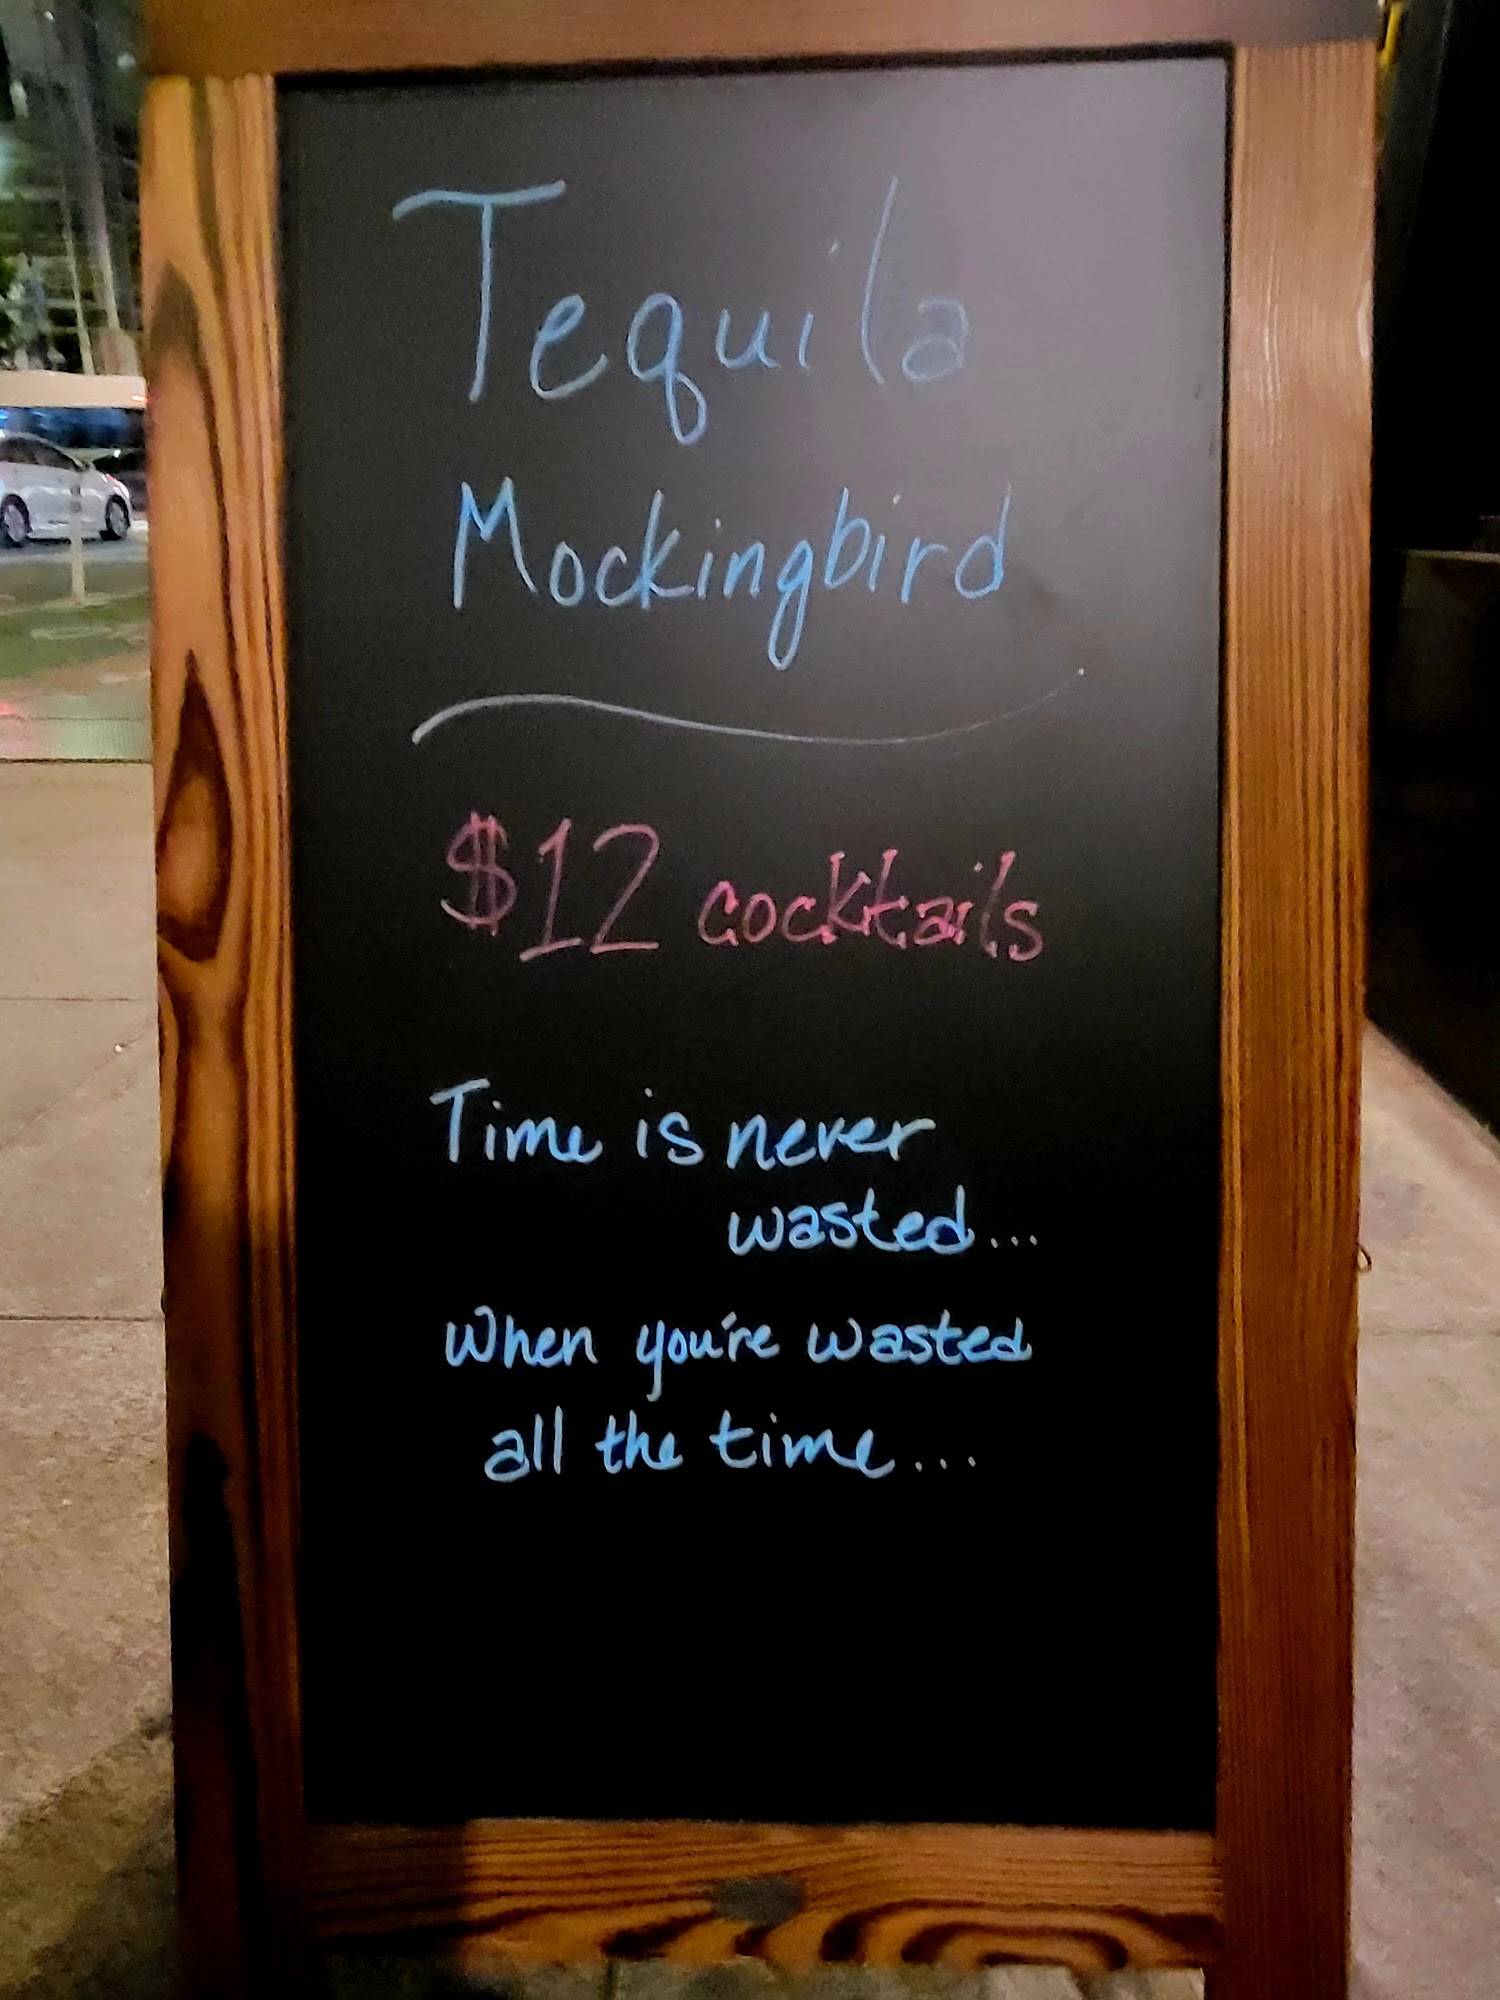 Tequila
Mockingbird
$12 cocktails
Time is never
wasted...
When you're wasted
all the time...